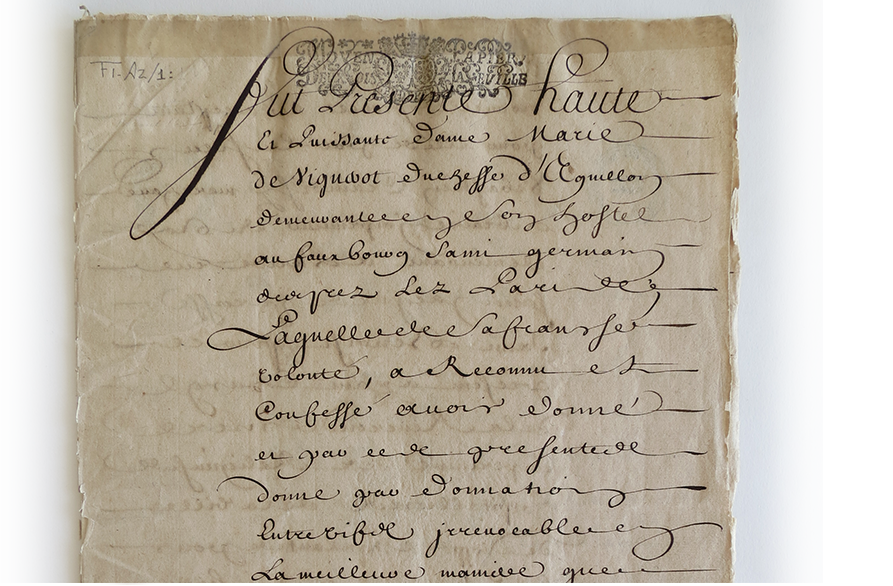 FI-AZ/1:
MOYEN PAPIER
fut Presente haute
Et Puissante dame Marie
de Vignerot duchesse d'Eguillon
demeurante en son hostel
au fauxbourg Saint germain
des prez Lez Paris
Laquelle de sa franche
volonté, a Reconnu et
Confessé avoir donné
et par ces presentes
donne par donnation
Entre vifs irrevocable en
La meilleure maniere que